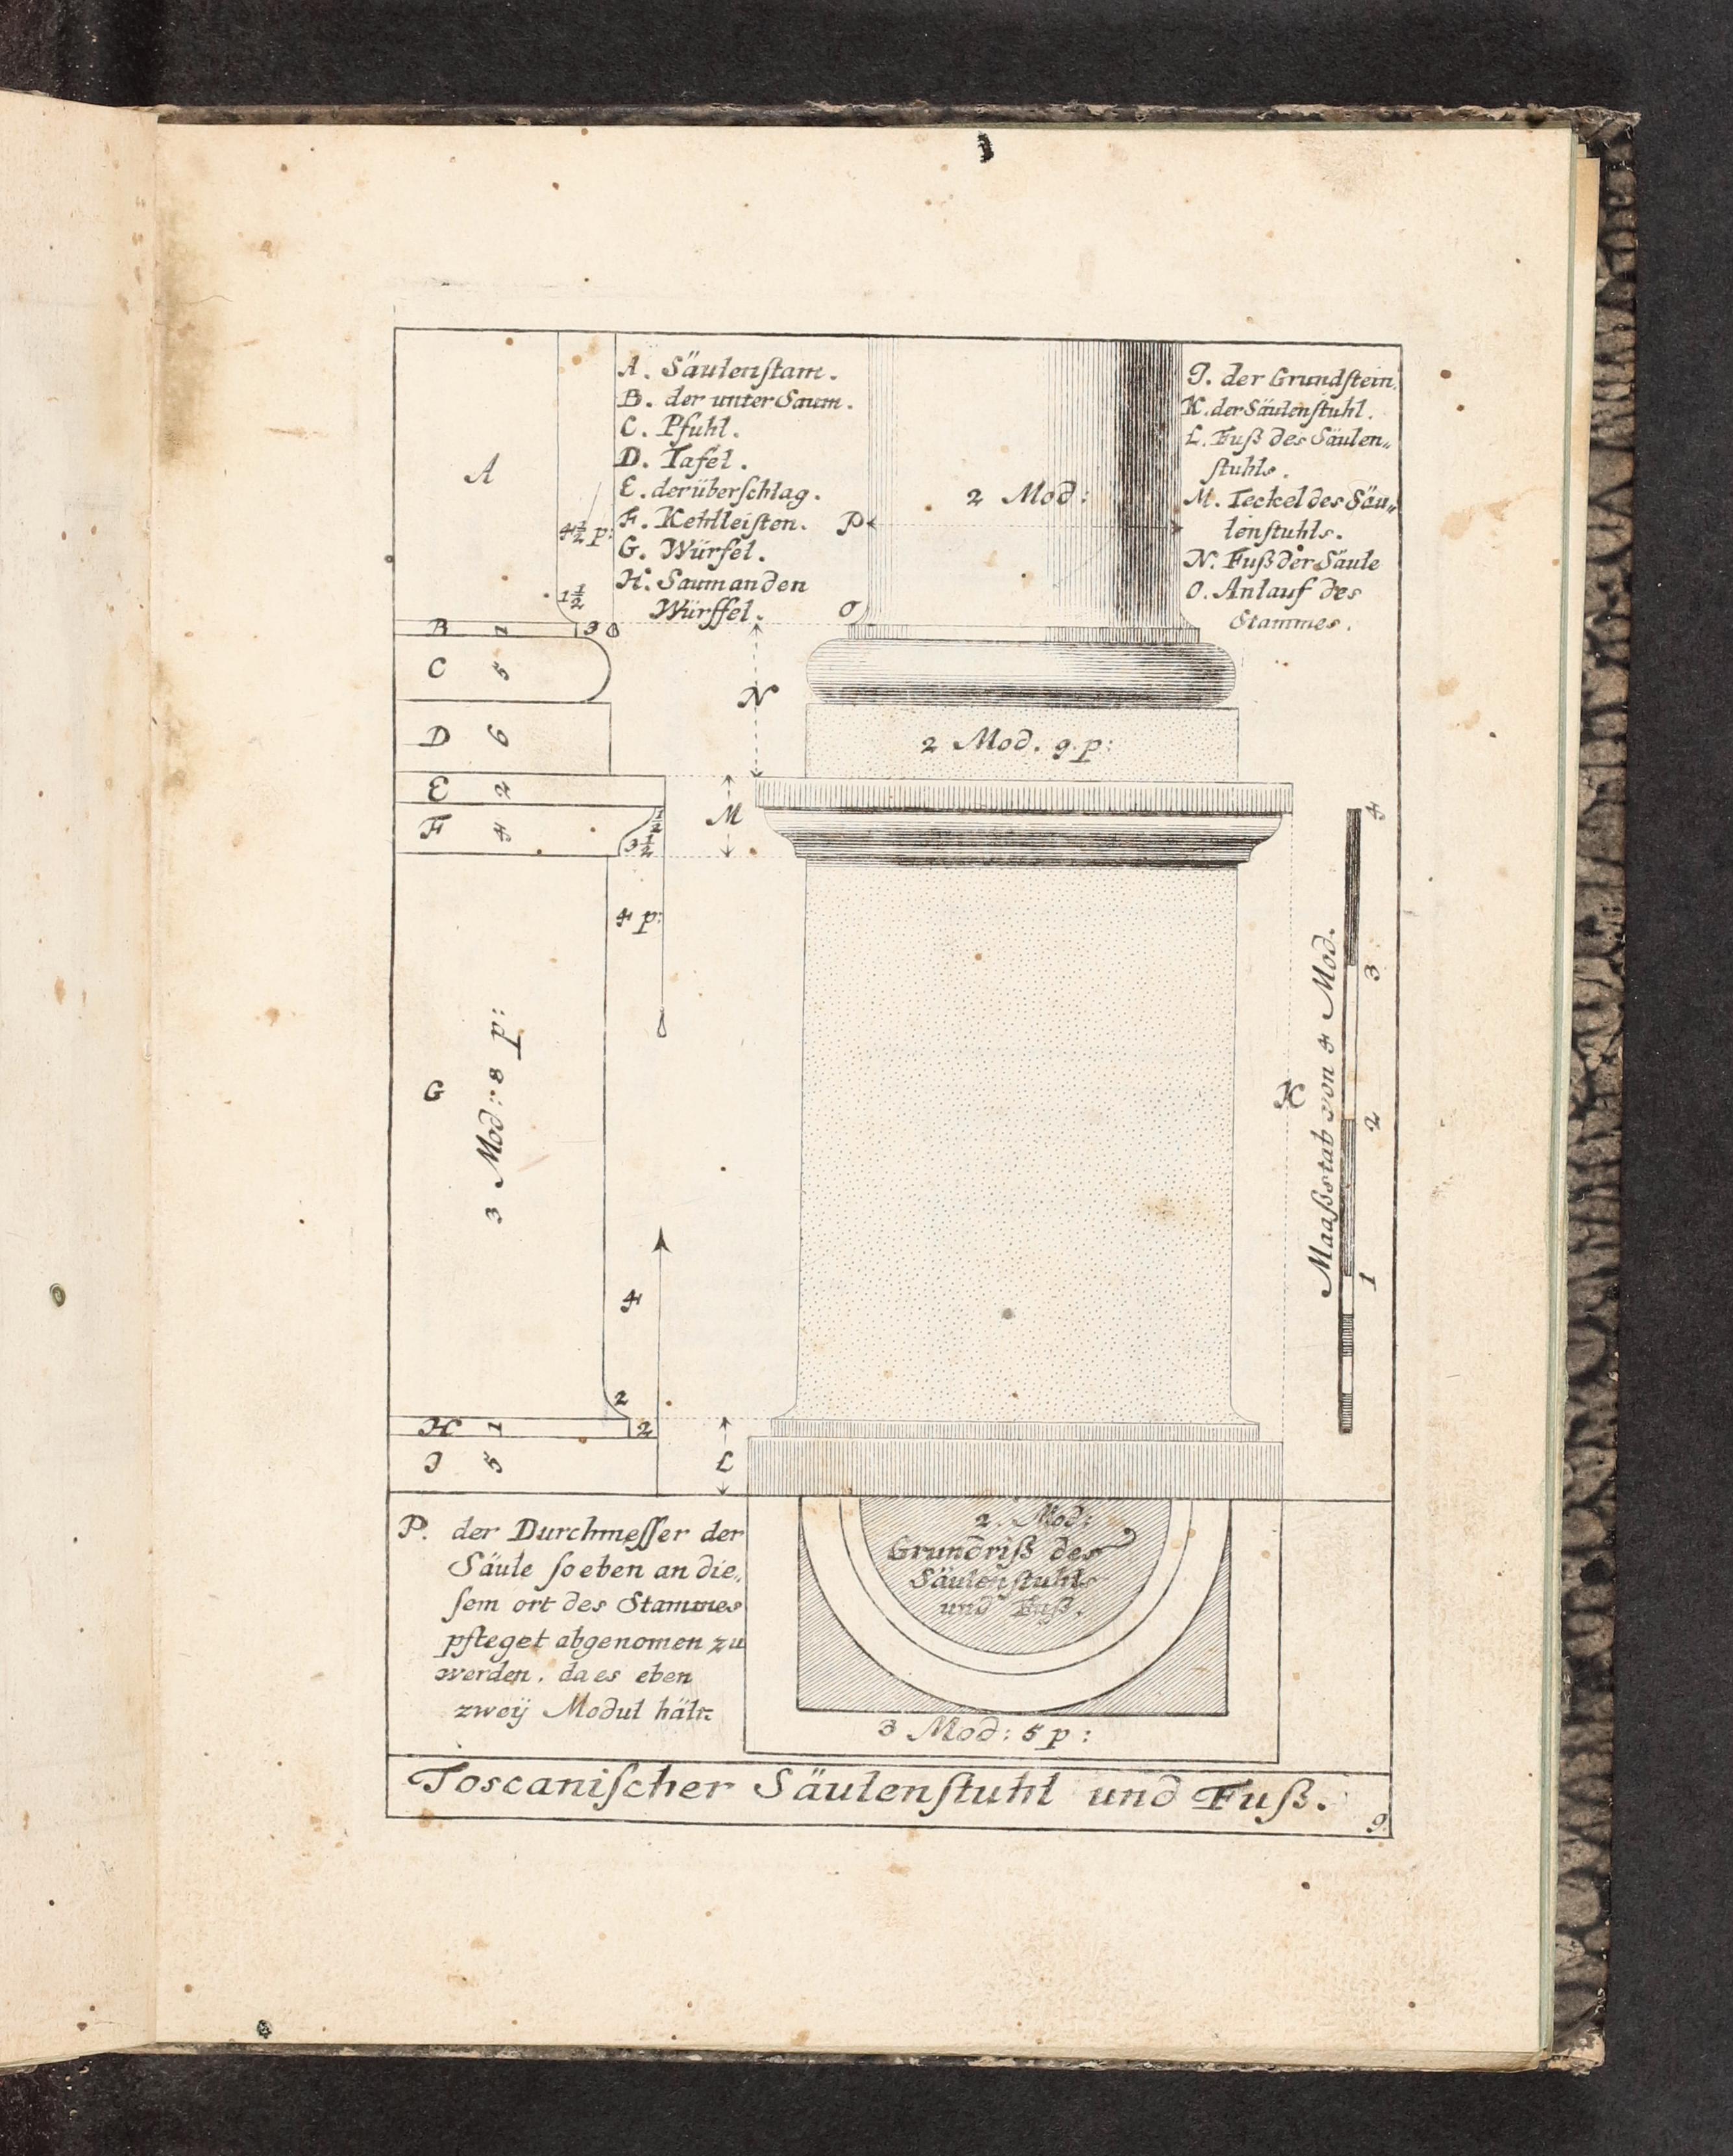 A. Säulenſtam.
B. der unter Saum.
C. Pfuhl.
D. Tafel.
E. der überſchlag.
F. Kehlleiſten.
G. Würfel.
H. Saum an den
Würffel.
J. der Grundſtein.
K. der Säulenſtuhl.
L. Fuß des Säulen„
ſtuhls.
M. Teckel des Säu„
lenſtuhls.
N. Fuß der Säule
O. Anlauf des
Stammes.
A
4½ p:
1½
B 1 3
C 5
D 6
E 2
F 4 ½
3½
4 p:
G 3 Mod: 8 p:
4
2
H 1 2
J 5
2 Mod:
P
O
N
2 Mod. 9 p:
M
K
L
Maaßstab von 4 Mod.
4
3
2
1
P. der Durchmeſſer der
Säule ſo eben an die„
ſem ort des Stammes
pfleget abgenomen zu
werden. da es eben
zweÿ Modul hält
2. Mod:
Grundriß des
Säulenſtuhls
und Fuß.
3 Mod: 5 p:
Toscaniſcher Säulenſtuhl und Fuß.
9.